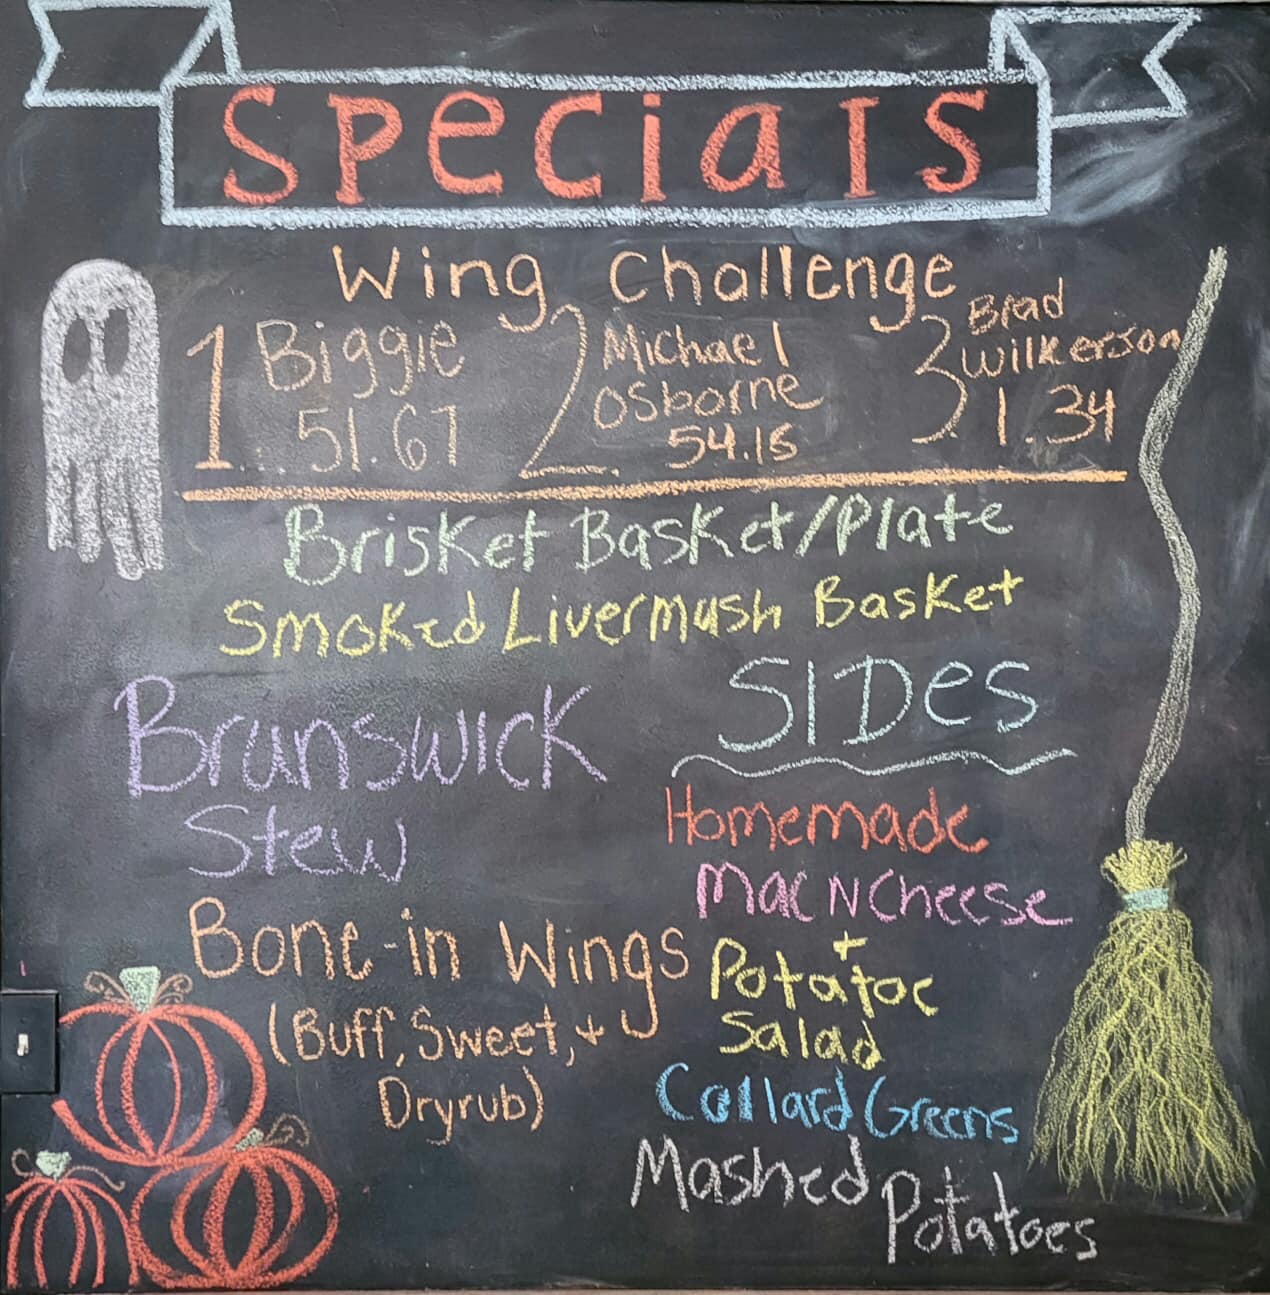 SPeciaIS
Wing Challenge
1 Biggie 51.67
2 Michael Osborne 54.15
3 Brad Wilkerson 1.34
Brisket Basket/Plate
Smoked Livermush Basket
Brunswick
Stew
Bone-in Wings
(Buff, Sweet, +
Dryrub)
SIDes
Homemade
Mac N Cheese
+
Potatoe
Salad
Collard Greens
Mashed
Potatoes